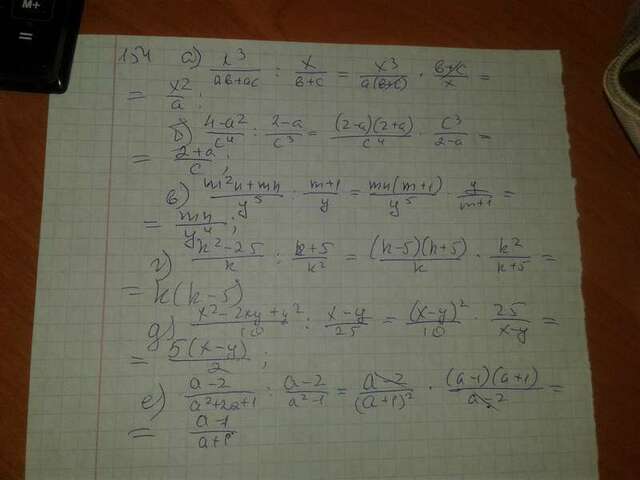 M+
=
154 а) x³/(ab+ac) : x/(b+c) = x³/(a(b+c)) · (b+c)/x =
= x2/a ;
б) (4-a²)/c⁴ : (2-a)/c³ = (2-a)(2+a)/c⁴ · c³/(2-a) =
= (2+a)/c ;
в) (m²n+mn)/y⁵ · (m+1)/y = mn(m+1)/y⁵ · y/(m+1) =
= mn/y⁴ ;
г) (k²-25)/k : (k+5)/k² = (k-5)(k+5)/k · k²/(k+5) =
= k(k-5)
д) (x²-2xy+y²)/10 : (x-y)/25 = (x-y)²/10 · 25/(x-y) =
= 5(x-y)/2 ;
е) (a-2)/(a²+2a+1) : (a-2)/(a²-1) = (a-2)/(a+1)² · (a-1)(a+1)/(a-2) =
= (a-1)/(a+1)